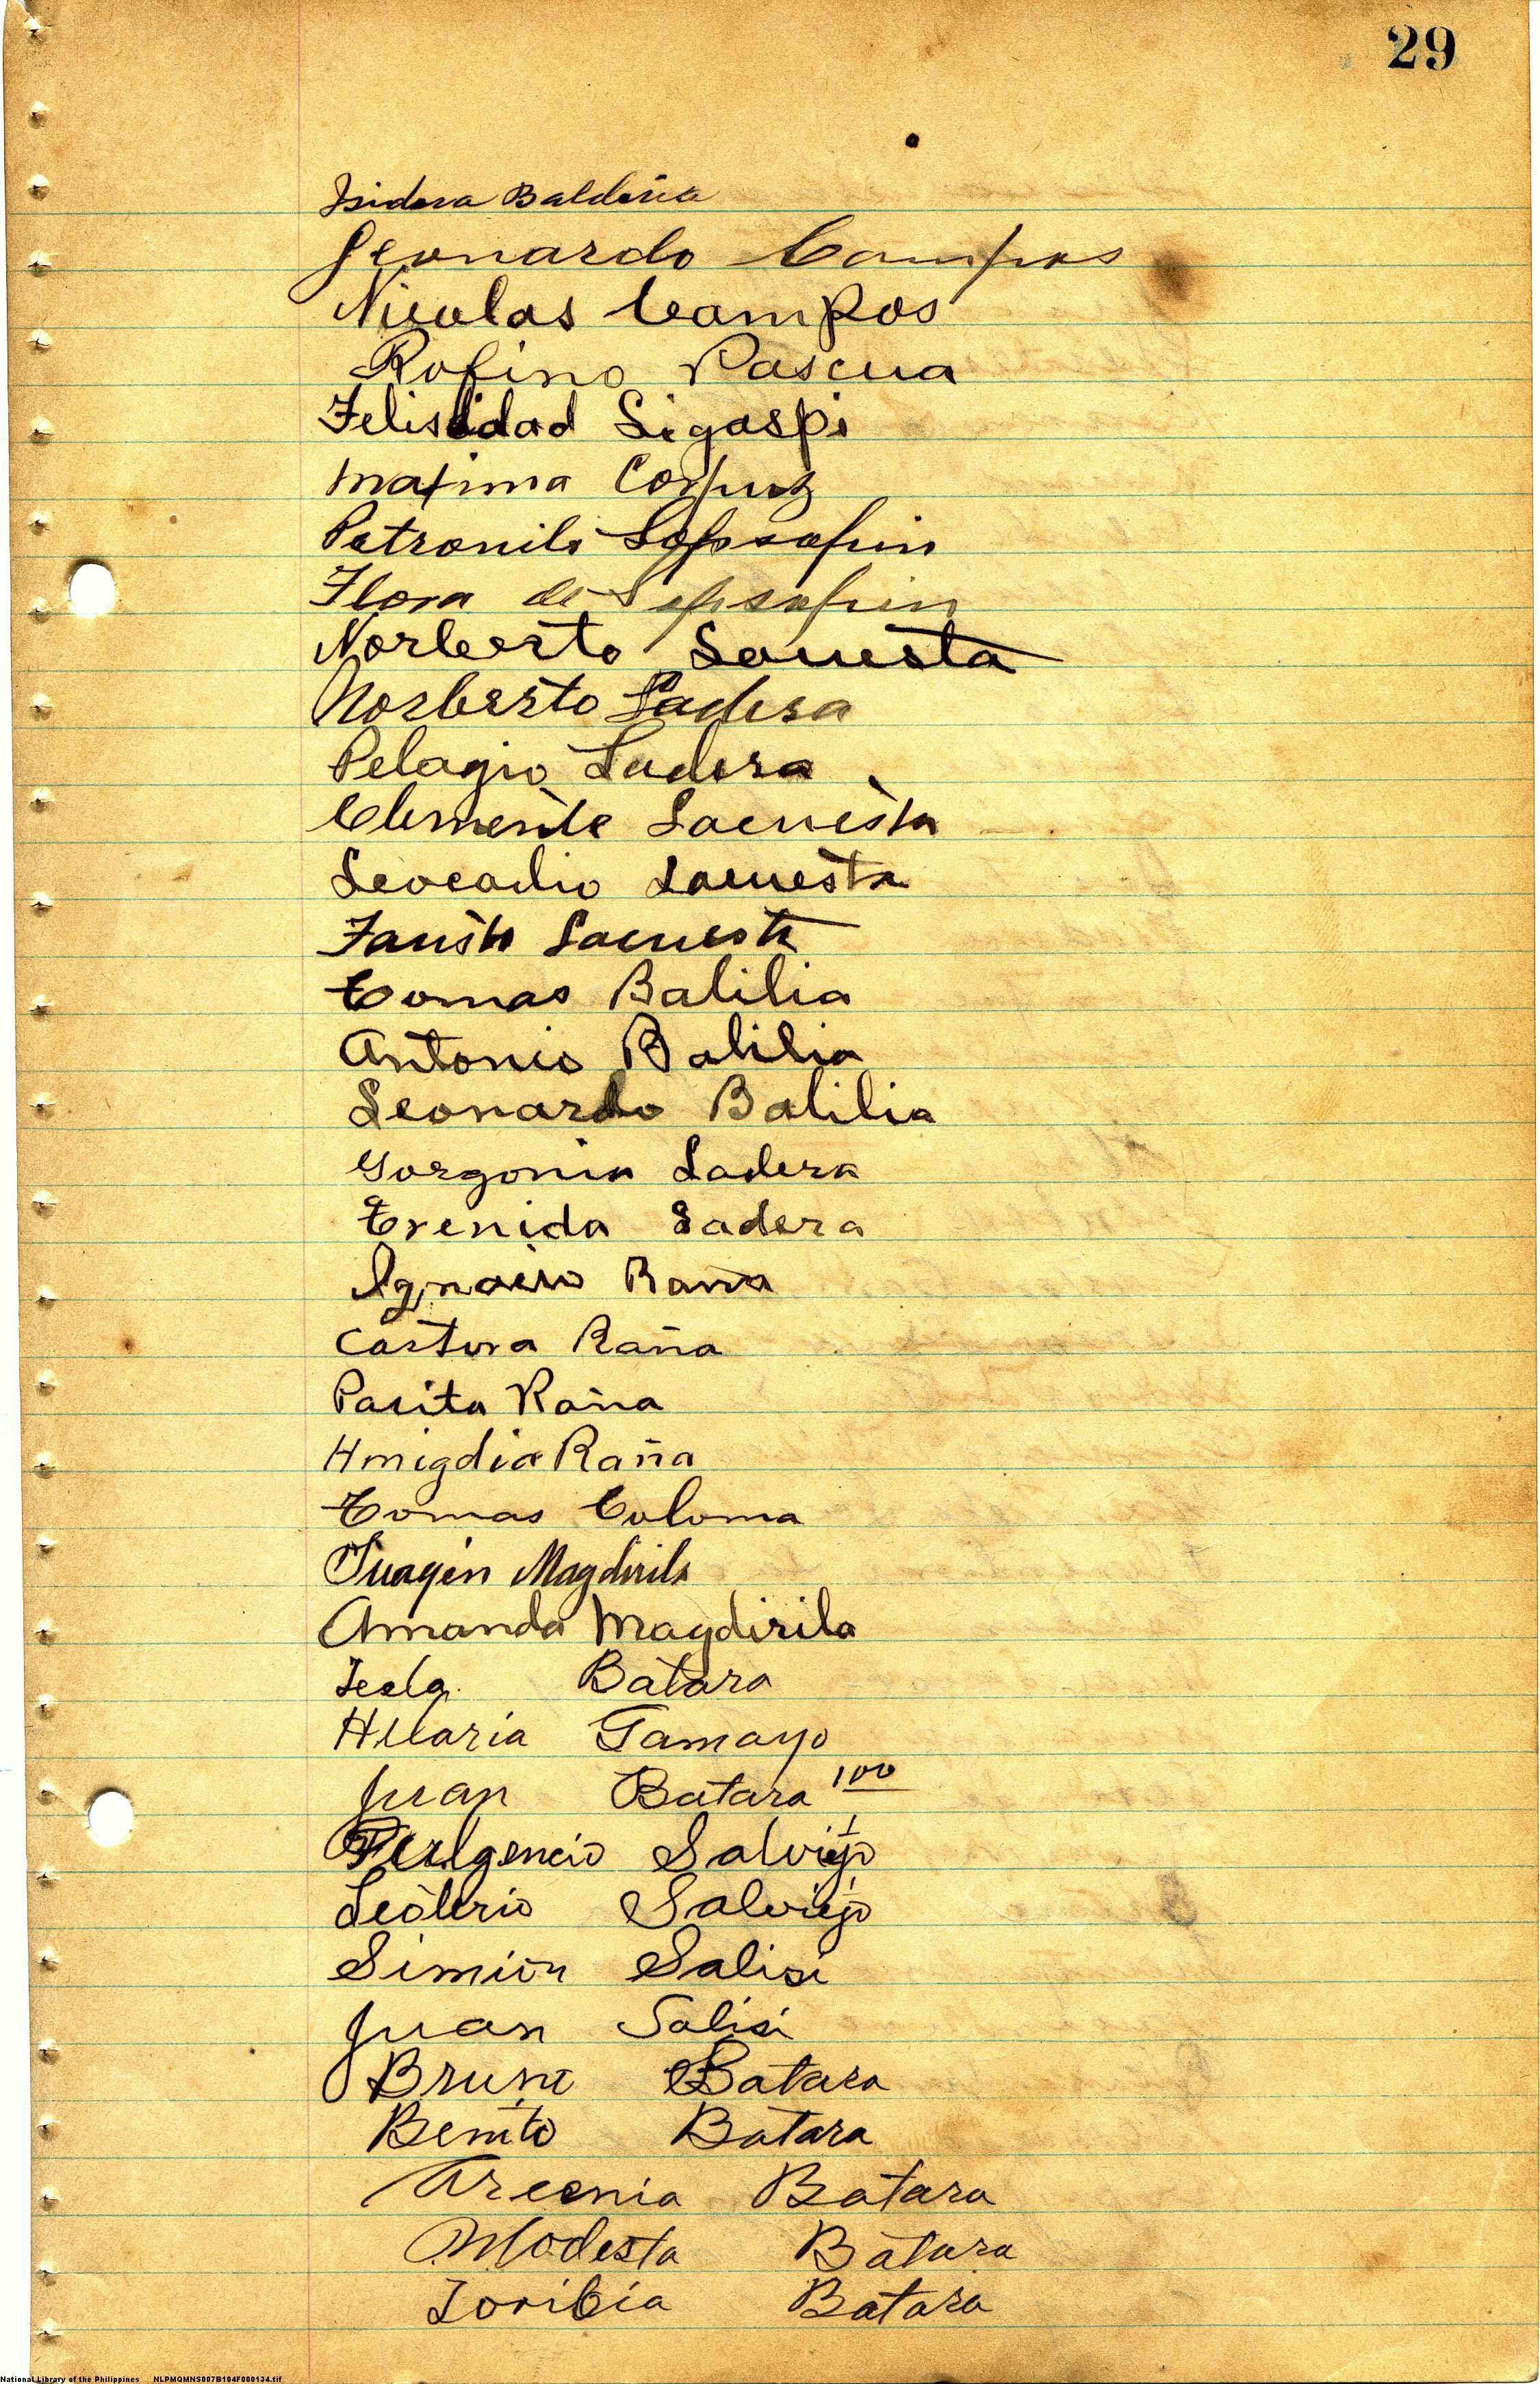 29
Isidora Baldoria
Leonardo Campos
Nicolas Campos
Rofino Pascua
Felisidad Ligaspi
Maxima Corpuz
Petronilo
Flora de
Norberto Lacuesta
Norberto Ladera
Pelagio Ladera
Clemente Lacuesta
Leocadio Lacuesta
Fausto Lacuesta
Tomas Balilia
Antonio Balilia
Leonardo Balilia
Gorgonia Ladera
Trenida Ladera
Ignacio Raña
Castora Raña
Pacita Raña
Hmigdia Raña
Tomas Coloma
Juaqin Magdirila
Amanda Magdirila
Tecla Batara
Hilaria Tamayo
Juan Batara 100
Fulgencio Salviejo
Leoterio Salviejo
Simion Salisi
Juan Salisi
Bruno Batara
Benito Batara
Arcenia Batara
Modesta Batara
Toribia Batara
National Library of the Philippines NLPMQMNS007B184F000134.tif